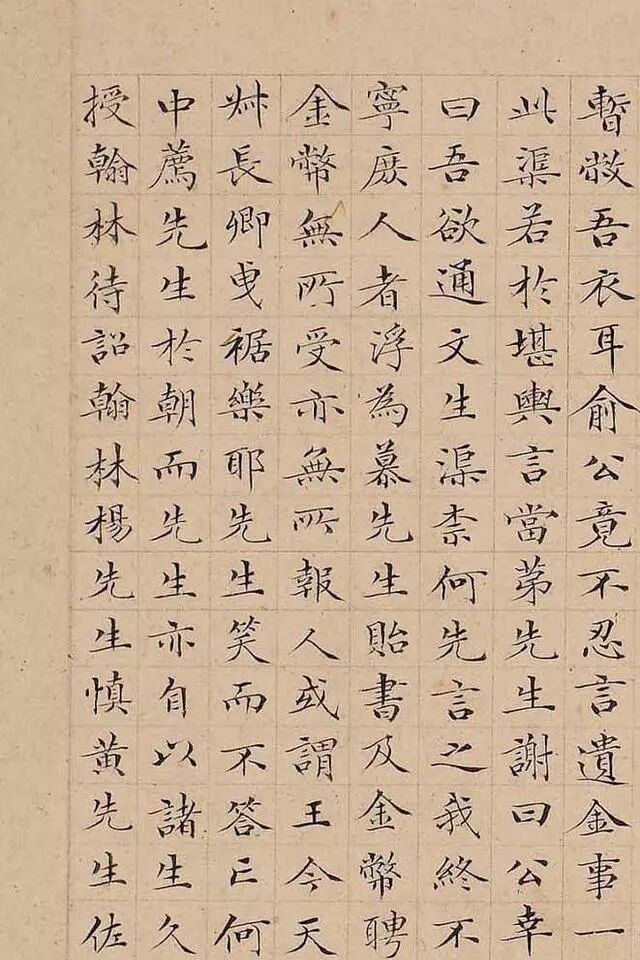 暫敝吾衣耳俞公竟不忍言遺金事一
此渠若於堪輿言當苐先生謝曰公幸
曰吾欲通文生渠柰何先言之我終不
寧庶人者浮為慕先生貽書及金幣聘
金幣無所受亦無所報人或謂王今天
叔長卿曳裾樂耶先生笑而不答亡何
中薦先生於朝而先生亦自以諸生久
授翰林待詔翰林楊先生慎黃先生佐